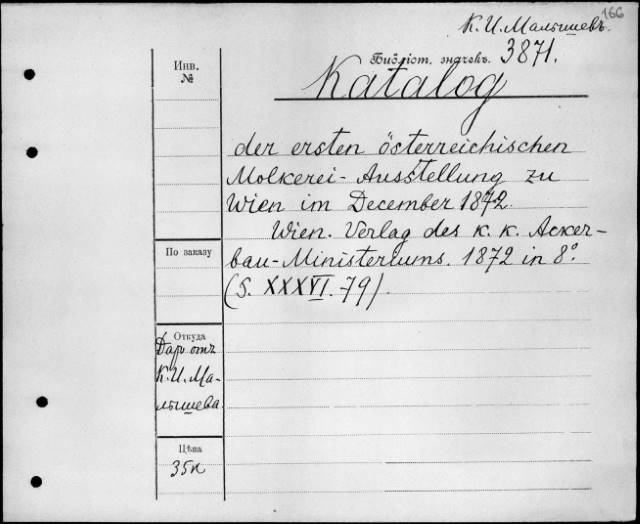 166
К. И. Малышевъ.
Библіот. значекъ. 3871.
Инв.
№
Katalog
der ersten österreichischen
Molkerei-Ausstellung zu
Wien im December 1872.
Wien. Verlag des K. K. Acker-
bau-Ministeriums. 1872 in 8°.
(S. XXXVI. 79).
По заказу
Откуда
Даръ отъ
К. И. Ма-
лышева.
Цѣна
35к